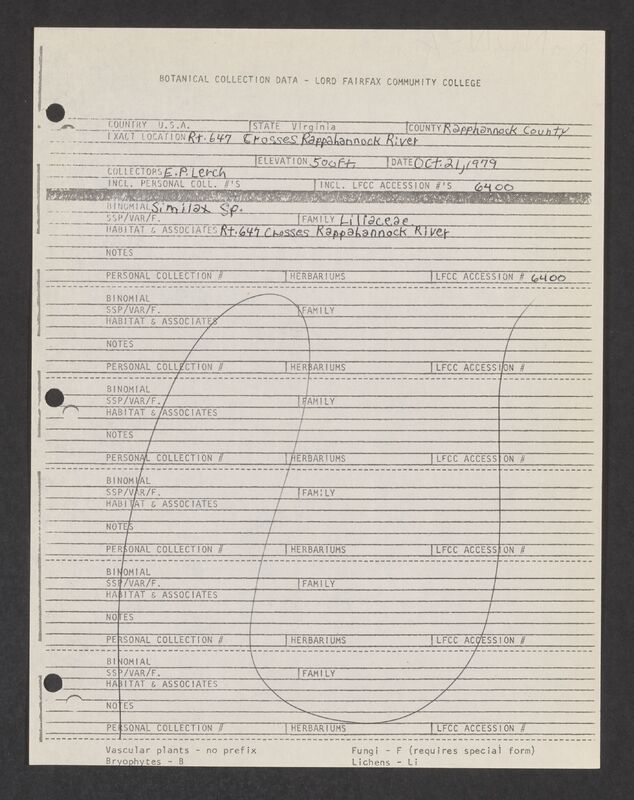 BOTANICAL COLLECTION DATA - LORD FAIRFAX COMMUMITY COLLEGE
COUNTRY U.S.A. STATE Virginia COUNTY Rapphannock County
EXACT LOCATION Rt. 647 Crosses Rappahannock River
ELEVATION 500ft DATE Oct. 21, 1979
COLLECTORS E.P. Lerch
INCL. PERSONAL COLL. #'S INCL. LFCC ACCESSION #'S 6400
BINOMIAL Similax Sp.
SSP/VAR/F. FAMILY Liliaceae
HABITAT & ASSOCIATES Rt. 647 Crosses Rappahannock River
NOTES
PERSONAL COLLECTION # HERBARIUMS LFCC ACCESSION # 6400
BINOMIAL
SSP/VAR/F. FAMILY
HABITAT & ASSOCIATES
NOTES
PERSONAL COLLECTION # HERBARIUMS LFCC ACCESSION #
BINOMIAL
SSP/VAR/F. FAMILY
HABITAT & ASSOCIATES
NOTES
PERSONAL COLLECTION # HERBARIUMS LFCC ACCESSION #
BINOMIAL
SSP/VAR/F. FAMILY
HABITAT & ASSOCIATES
NOTES
PERSONAL COLLECTION # HERBARIUMS LFCC ACCESSION #
BINOMIAL
SSP/VAR/F. FAMILY
HABITAT & ASSOCIATES
NOTES
PERSONAL COLLECTION # HERBARIUMS LFCC ACCESSION #
BINOMIAL
SSP/VAR/F. FAMILY
HABITAT & ASSOCIATES
NOTES
PERSONAL COLLECTION # HERBARIUMS LFCC ACCESSION #
Vascular plants - no prefix Fungi - F (requires special form)
Bryophytes - B Lichens - Li